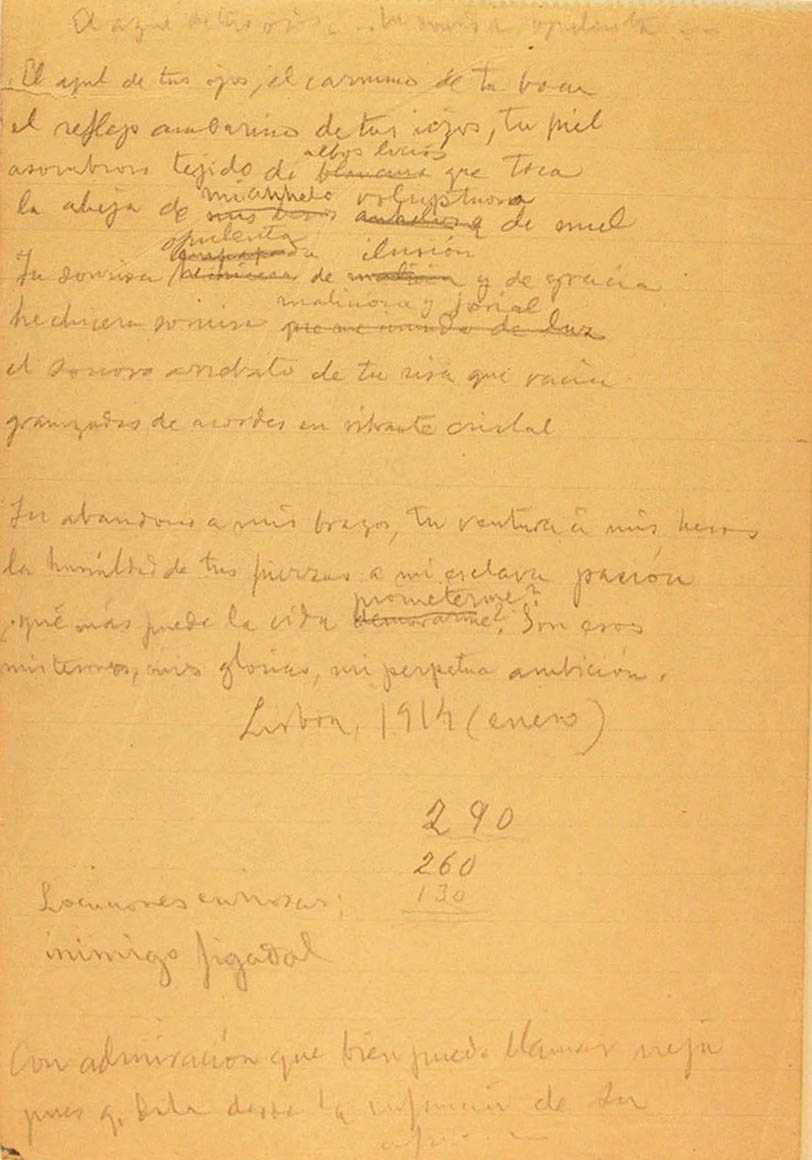 El azul de tus ojos, ... tu sonrisa opulenta ...
El azul de tus ojos, el carmino de tu boca
el reflejo ambarino de tus rizos, tu piel
albos lirios
asombroso tejido de blancura que toca
mi anhelo voluptuoso
la abeja de mis besos de miel
opulenta ilusión
Tu sonrisa hechicera de malicia y de gracia
maliciosa y jovial
hechicera sonrisa que me inunda de luz
el sonoro arrebato de tu risa que vacía
granizadas de acordes en vibrante cristal
Tu abandono a mis brazos, tu ventura a mis besos
la humildad de tus fuerzas a mi esclava pasión
prometerme?
¿qué más puede la vida Son esos
mis tesoros, mis glorias, mi perpetua ambición.
Lisboa, 1914 (enero)
290
260
130
Locuciones curiosas:
inimigo figadal
Con admiración que bien puedo llamar vieja
pues q. data desde la de su